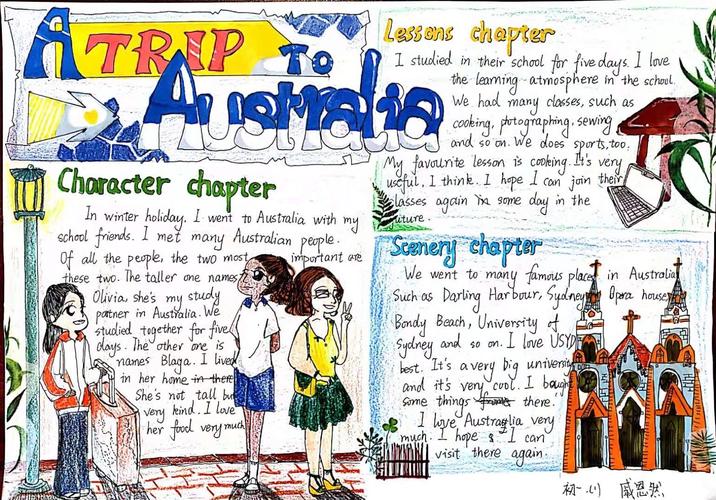 A TRIP TO
Australia
Character chapter
In winter holiday, I went to Australia with my
school friends. I met many Australian people.
Of all the people, the two most important are
these two. The taller one names
Olivia, she's my study
partner in Australia. We
studied together for five
days. The other one is
names Blaga. I lived
in her home in there
She's not tall but
very kind. I love
her food very much
Lessons chapter
I studied in their school for five days. I love
the learning atmosphere in the school.
We had many classes, such as
cooking, photographing, sewing
and so on. We does sports, too.
My favourite lesson is cooking. It's very
useful, I think. I hope I can join their
classes again in some day in the
future.
Scenery chapter
We went to many famous places in Australia
Such as Darling Harbour, Sydney Opera house,
Bondy Beach, University of
Sydney and so on. I love USYD
best. It's a very big university
and it's very cool. I bought
some things from there.
I love Australia very
much. I hope I can
visit there again.